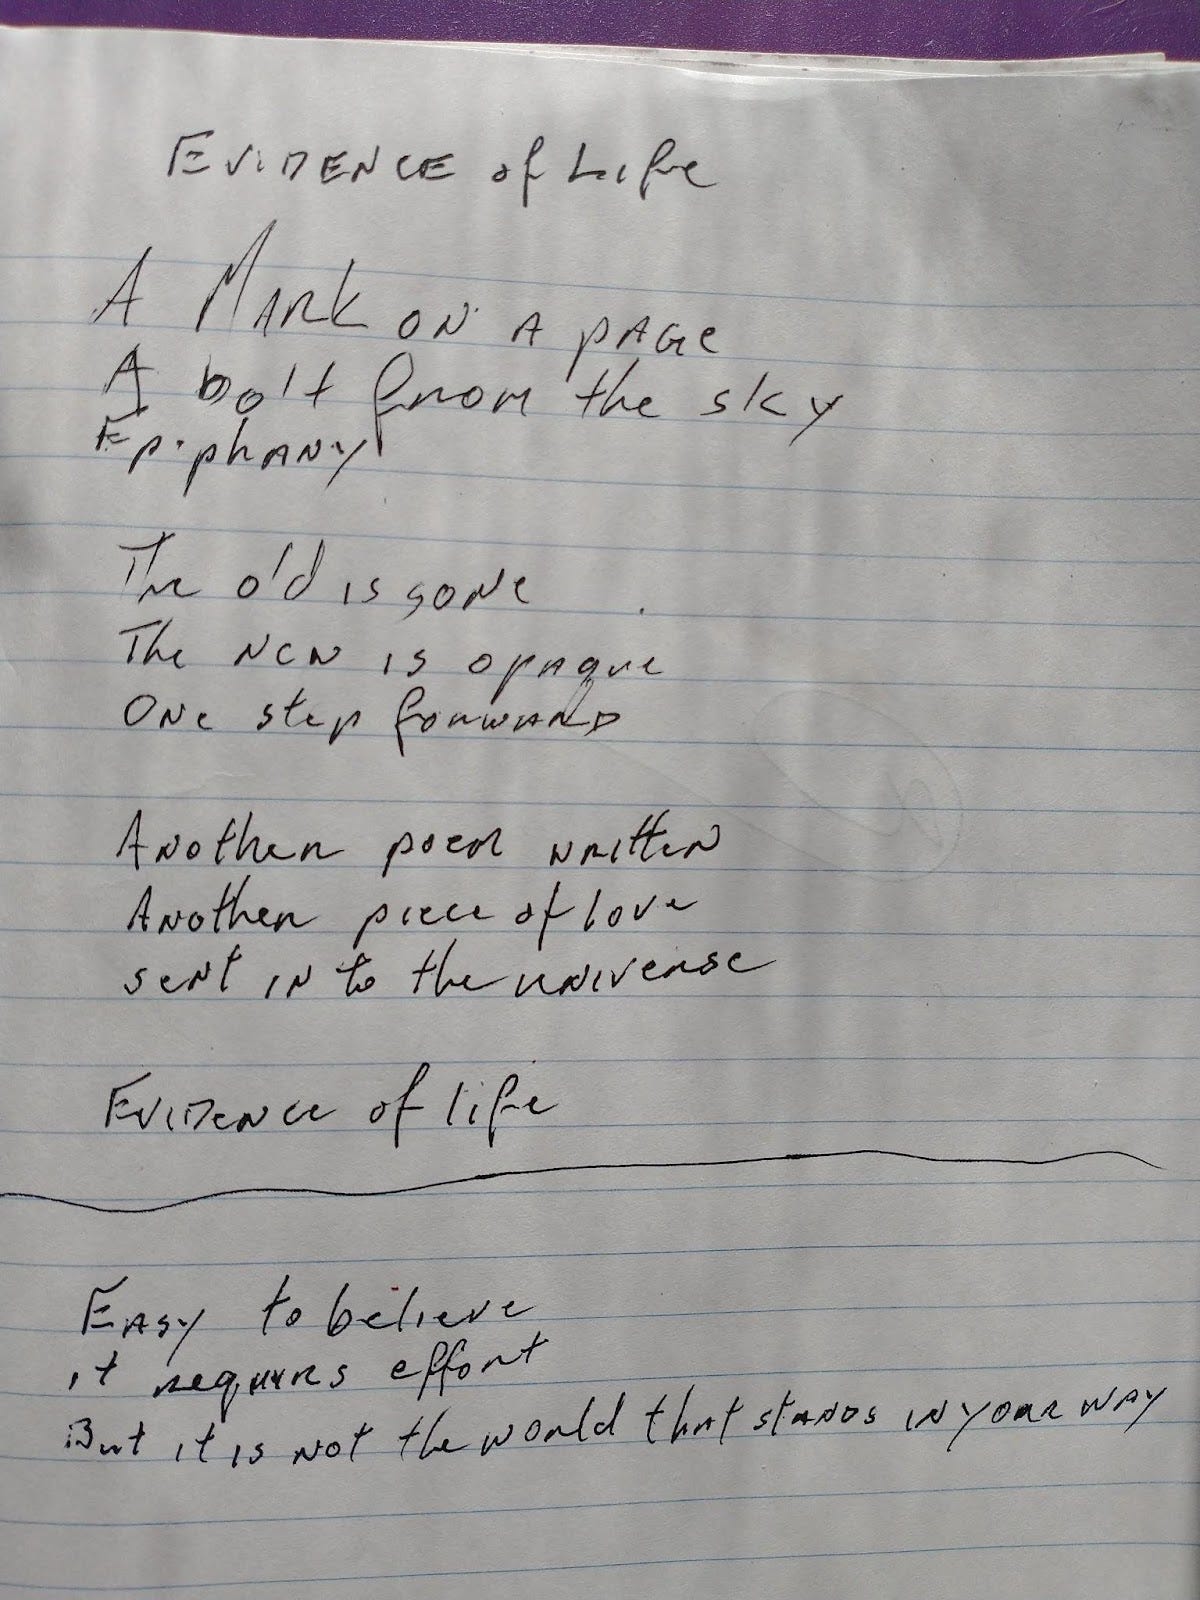 Evidence of Life
A Mark on a page
A bolt from the sky
Epiphany
The old is gone
The new is opaque
One step forward
Another poem written
Another piece of love
sent in to the universe
Evidence of life
Easy to believe
it requires effort
But it is not the world that stands in your way